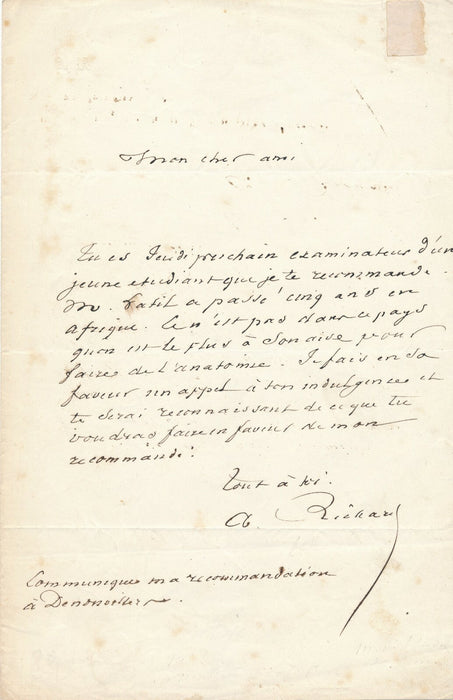 Mon cher ami
Tu es Jeudi prochain examinateur d'un
jeune etudiant que je te recommande.
M. a passé cinq ans en
afrique. Ce n'est pas dans ce pays
quon est le plus à son aise pour
faire de l'anatomie. Je fais en sa
faveur un appel à ton indulgence et
te serai reconnaissant de ce que tu
voudras faire en faveur de mon
recommandé.
tout à toi.
A. Richard
Communique ma recommandation
à Denonvilliers.